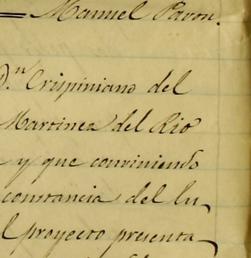 Manuel Pavon.
D.ⁿ Crispiniano del
Martinez del Rio
y que conviniendo
constancia del lu
l proyecto presenta